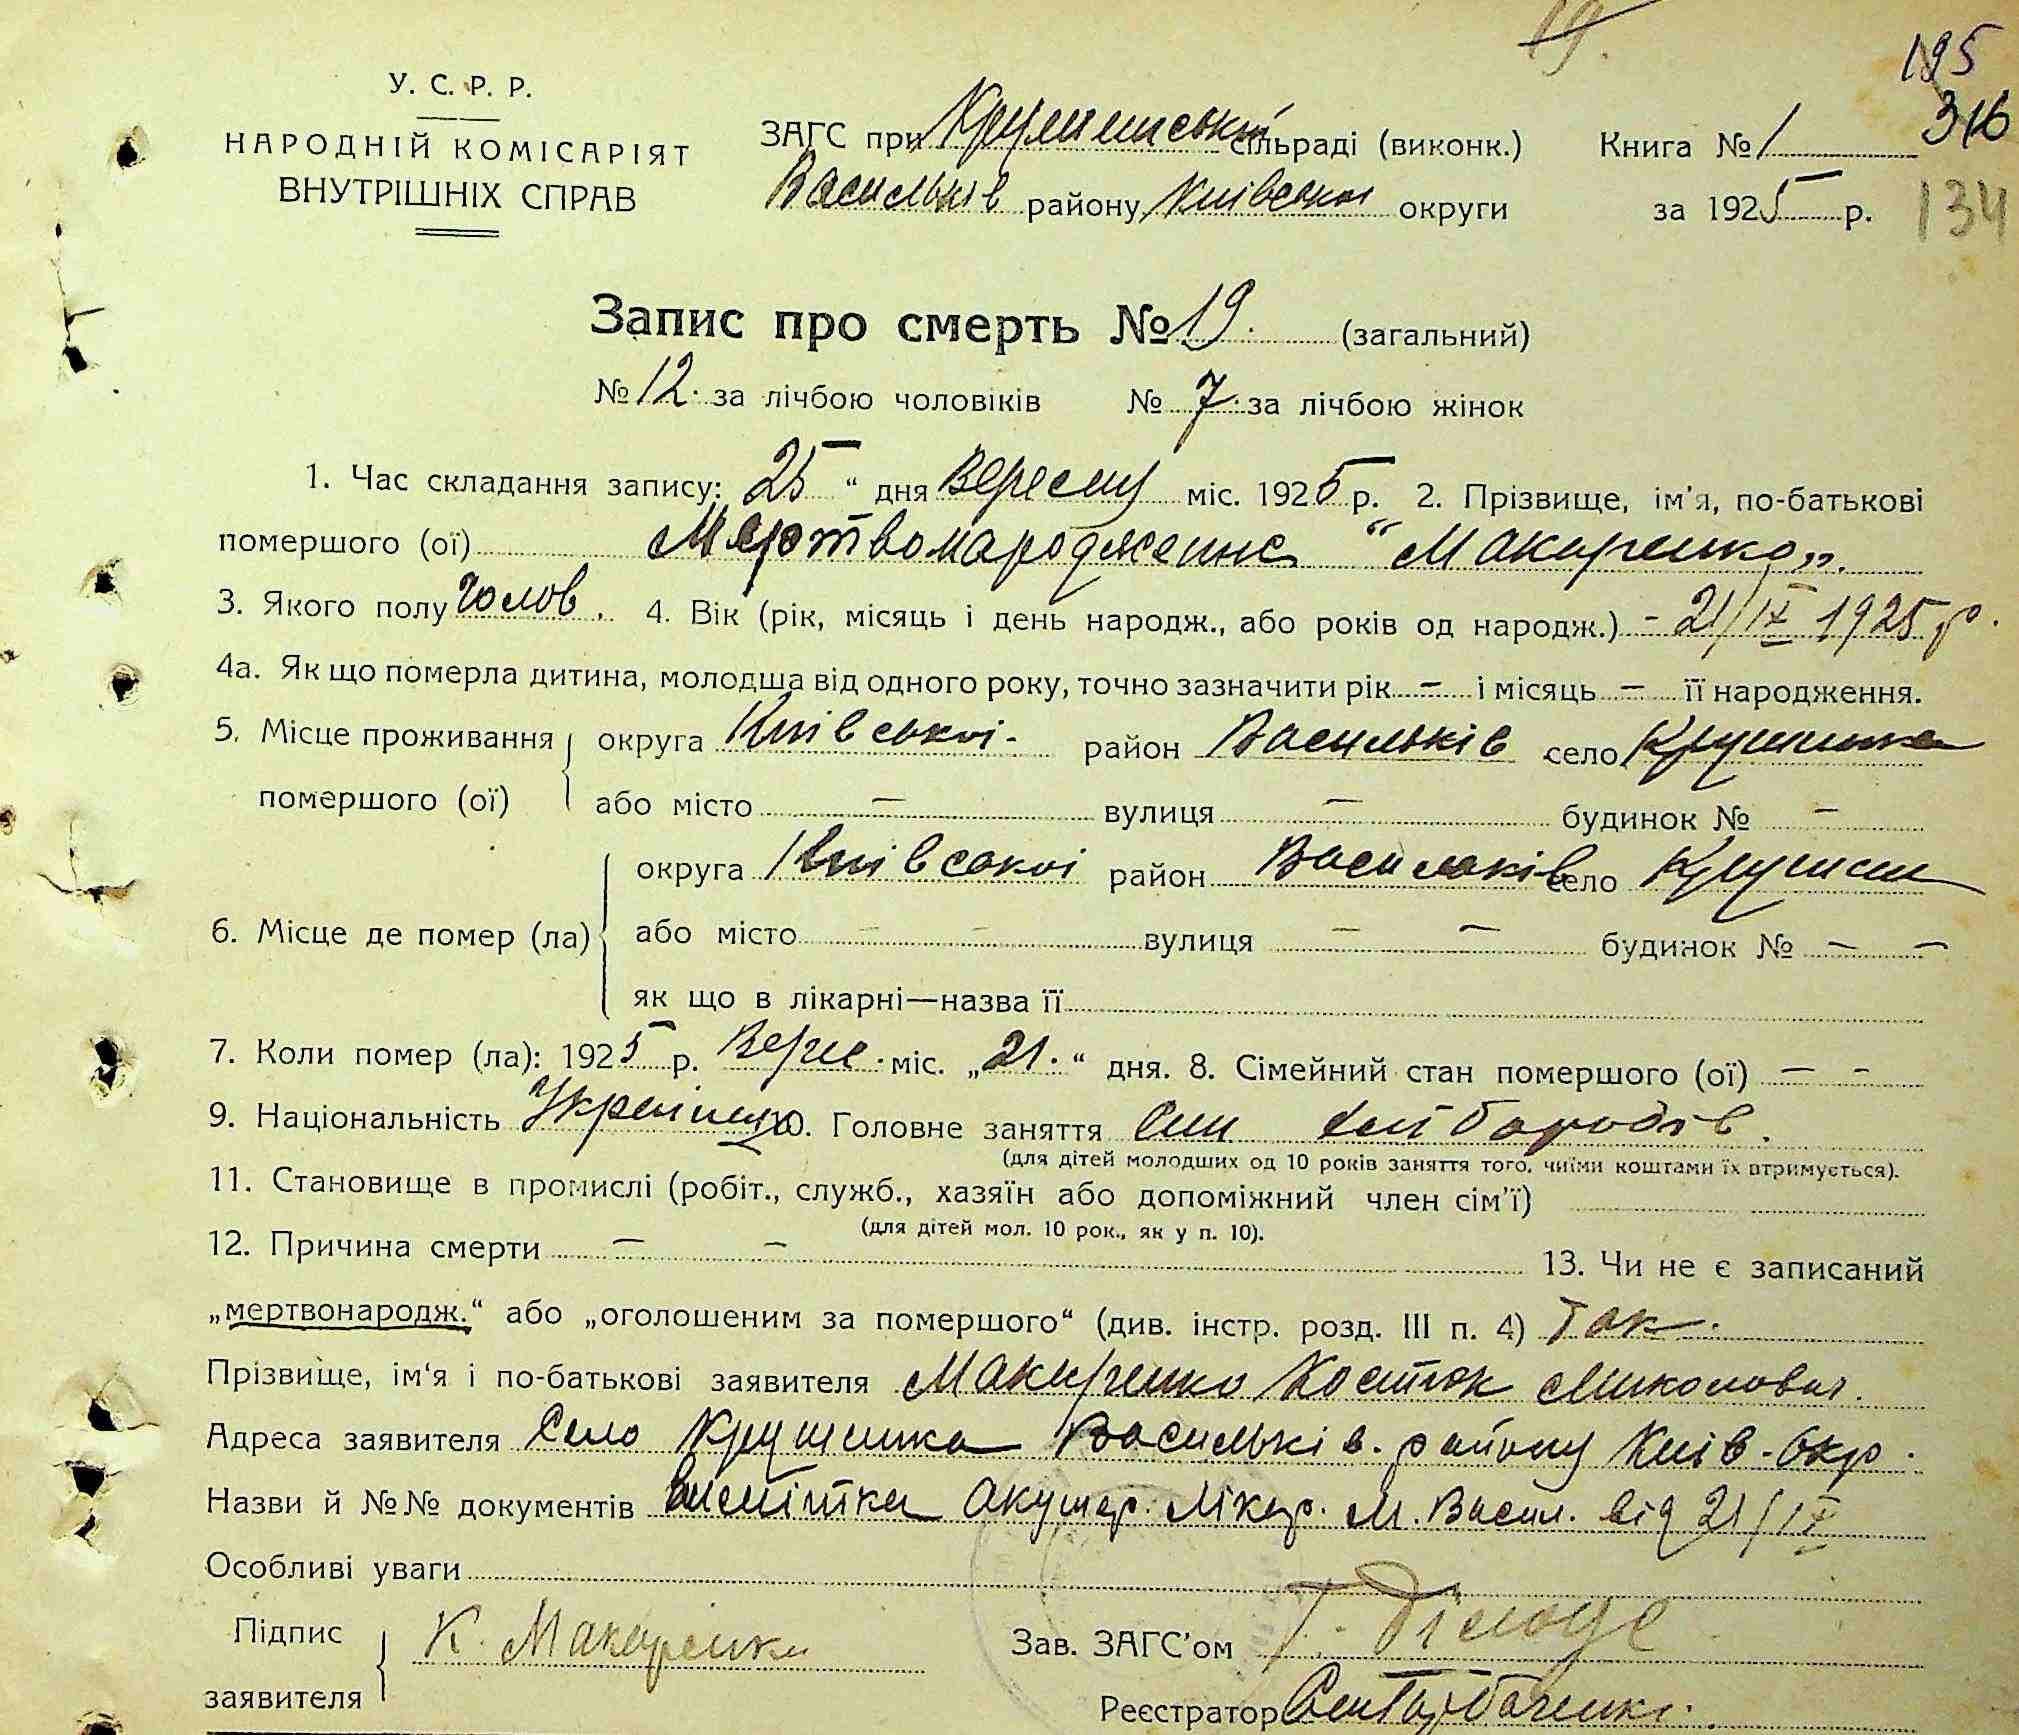 19.
195
У. С. Р. Р.
316
НАРОДНІЙ КОМІСАРІЯТ
ВНУТРІШНІХ СПРАВ
ЗАГС при сільраді (виконк.) Книга № 1
Васильків району Київської округи за 1925 р. 134
Запис про смерть № 19. (загальний)
№ 12. за лічбою чоловіків № 7. за лічбою жінок
1. Час складання запису: 25 “ дня Вересня міс. 1925 р. 2. Прізвище, ім'я, по-батькові
помершого (ої) Мертвонародженне “Макаренко„.
3. Якого полу чолов. 4. Вік (рік, місяць і день народж., або років од народж.) - 21/IX 1925 р.
4а. Як що померла дитина, молодша від одного року, точно зазначити рік – і місяць – її народження.
5. Місце проживання округа Київської- район Васильків село Крушинка
помершого (ої) або місто – вулиця – будинок № –
округа Київської район Васильків село
6. Місце де помер (ла) або місто – – вулиця – – будинок № – –
як що в лікарні—назва її
7. Коли помер (ла): 1925 р. Верес. міс. „21.“ дня. 8. Сімейний стан помершого (ої) – -
9. Національність 10. Головне заняття Син хліборобів.
(для дітей молодших од 10 років заняття того, чиїми коштами їх втримується).
11. Становище в промислі (робіт., служб., хазяїн або допоміжний член сім'ї)
(для дітей мол. 10 рок., як у п. 10).
12. Причина смерти – – 13. Чи не є записаний
„мертвонародж.“ або „оголошеним за помершого“ (див. інстр. розд. III п. 4) Так.
Прізвище, ім'я і по-батькові заявителя Макаренко Костюк Миколович.
Адреса заявителя Село Крушинка Васильків. району Київ-Окр.
Назви й №№ документів Виспітка Акушер. Лікар. М. Васил. від 21/IX
Особливі уваги
Підпис
заявителя К. Макаренко Зав. ЗАГС'ом
Реєстратор